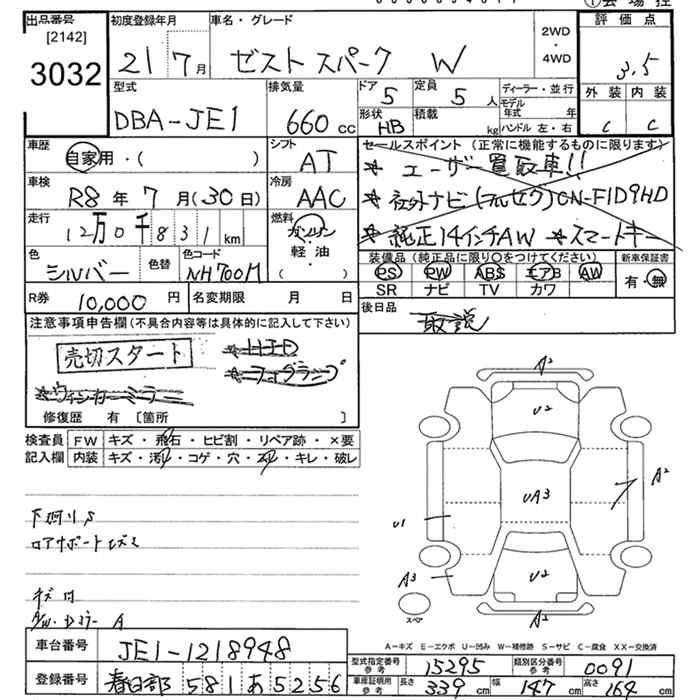 会場控
出品番号 初度登録年月 車名・グレード 2WD・4WD 評価点
[2142]
3032 21 7月 ゼスト スパーク W 3.5
型式 排気量 ドア 定員 ディーラー・並行 外装 内装
DBA-JE1 660cc 5 5人 モデル年式 年 C C
形状 積載 HB kg ハンドル 左・右
車歴 自家用・( ) シフト AT セールスポイント(正常に機能するものに限ります)
* ユーザー買取車!!
車検 R8年7月(30日) 冷房 AAC * 社外ナビ(フルセグ)CN-F1D9HD
走行 12万0千831km 燃料 ガソリン・軽油・( ) * 純正14インチAW * スマートキー
色 シルバー 色替 色コード NH700M 装備品(純正品に限り○をつけてください) 新車保証書
PS PW ABS エアB AW 有・無
SR ナビ TV カワ
R券 10,000円 名変期限 月 日 後日品 取説
注意事項申告欄(不具合内容等は具体的に記入して下さい)
売切スタート * HID
* フォグランプ
* ウィンカーミラー
修復歴 有 [箇所 ]
検査員 FW キズ・飛石・ヒビ割・リペア跡・×要
記入欄 内装 キズ・汚れ・コゲ・穴・スレ・キレ・破レ
A² U2 A² UA3 U1 A3 U2 A²
下廻りS
ロアサポート
キズ
スペア
A-キズ E-エクボ U-凹み W-補修跡 S-サビ C-腐食 XX-交換済
車台番号 JE1-1218948 型式指定番号 参考 15295 類別区分番号 参考 0091
登録番号 春日部 581 あ 5256 車庫証明用 参考 長さ 339cm 幅 147cm 高さ 164cm